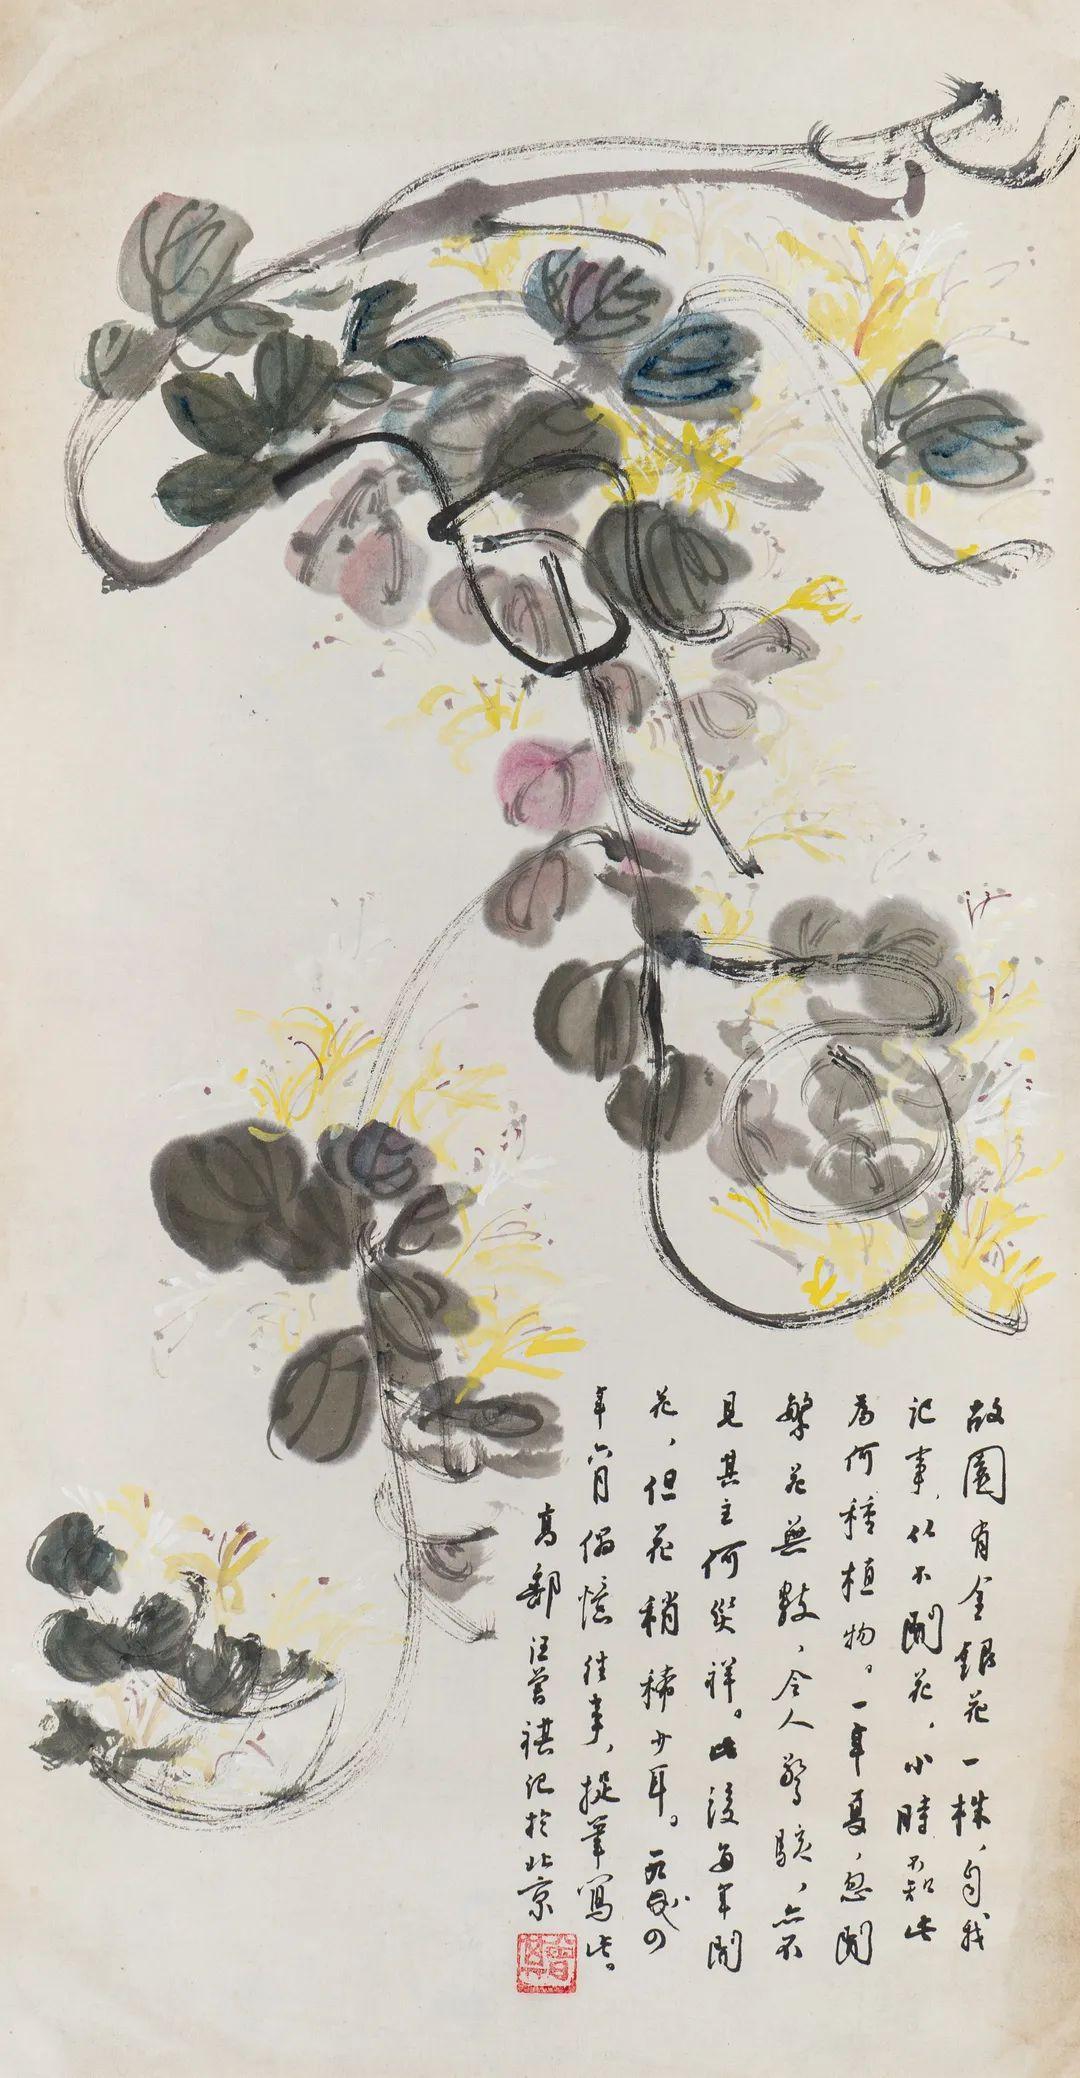 故園有金銀花一株，自我
记事，从不開花，小時不知此
为何種植物。一年夏，忽開
繁花無數，令人驚駭，亦不
見其主何災祥。此後每年開
花，但花稍稀少耳。一九八四
年六月偶憶往事，提筆寫此。
高郵汪曾祺记於北京